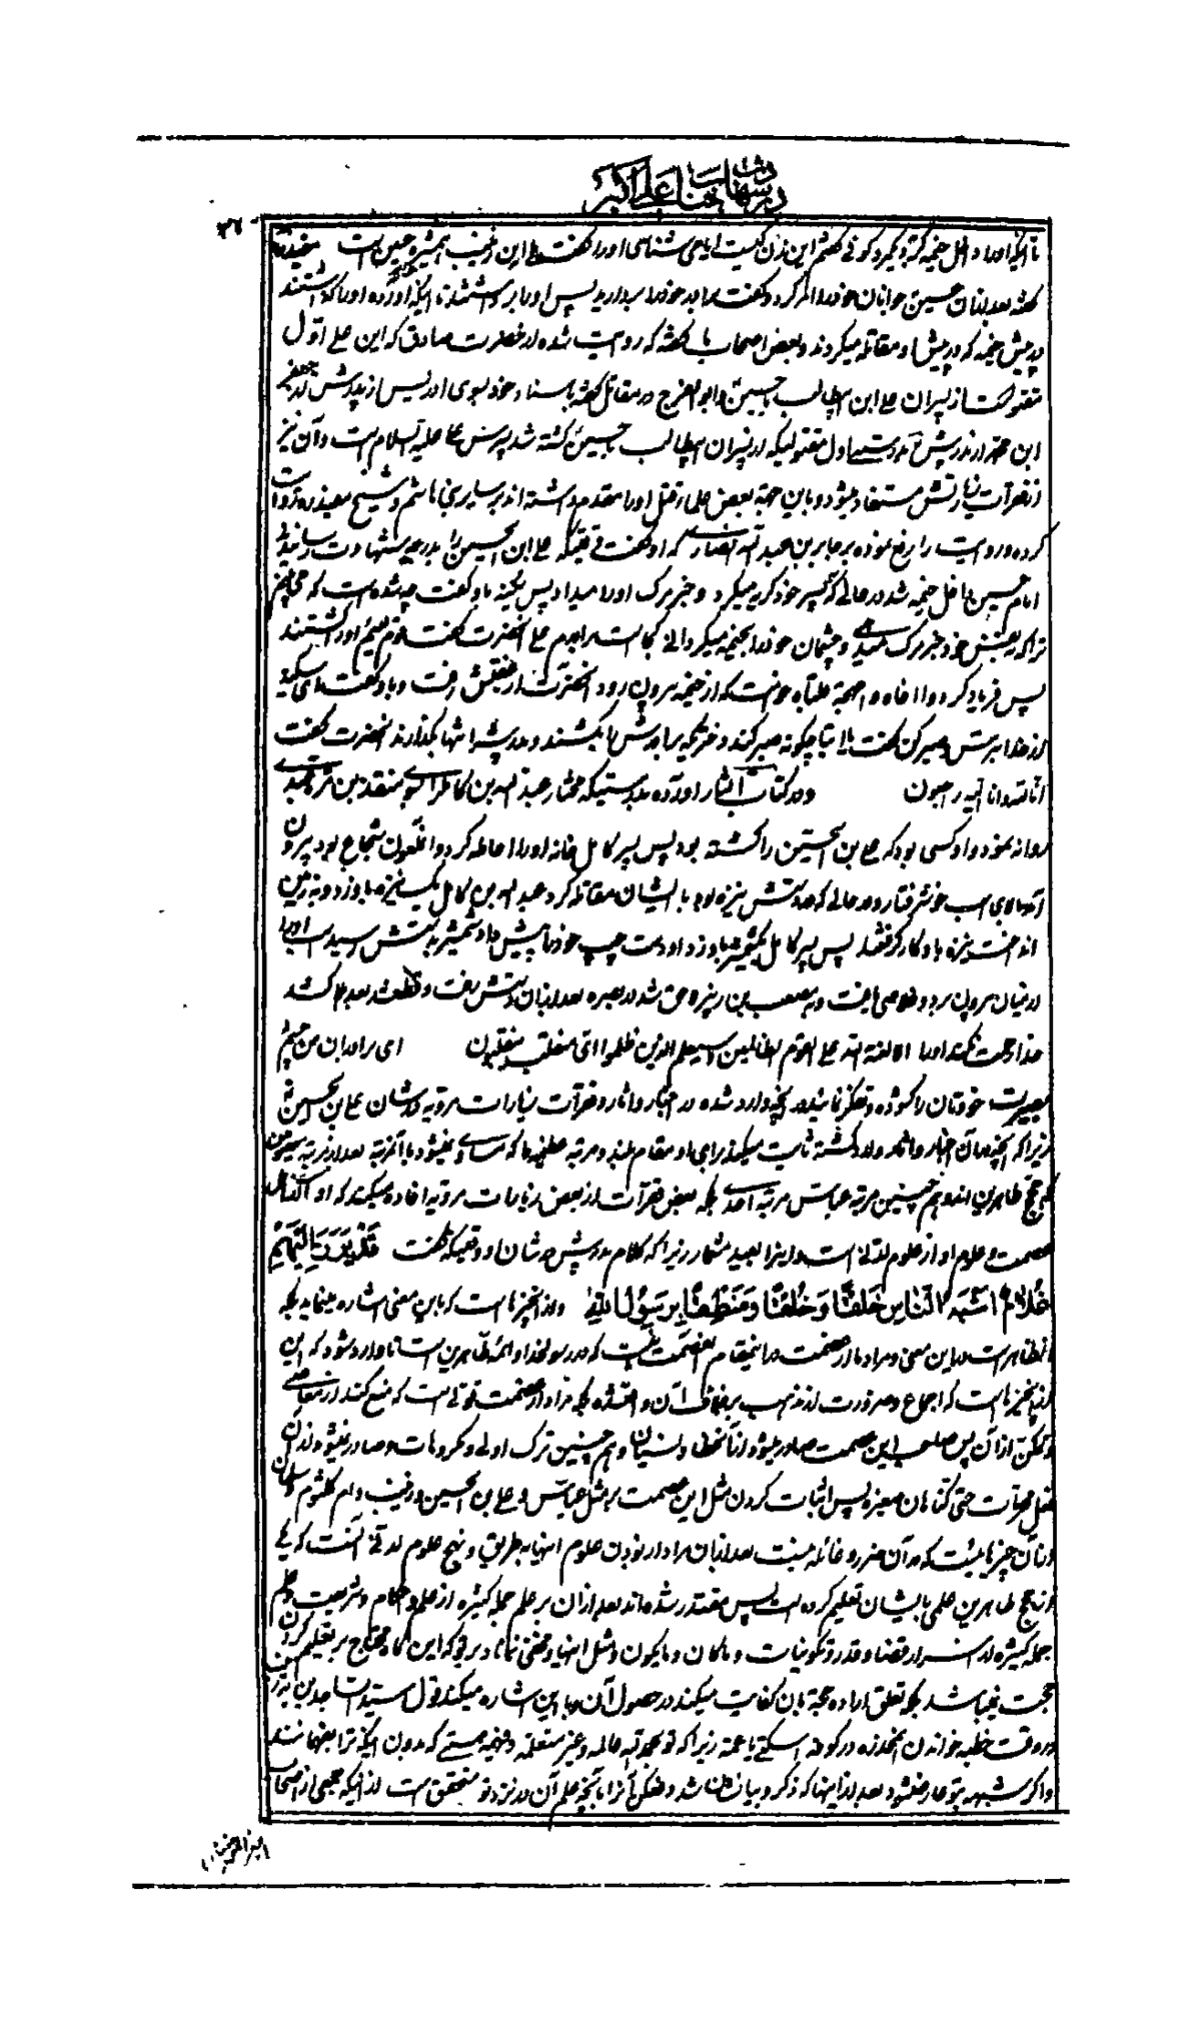 در شهادت جناب علی اکبر
تا آنکه اورا داخل خیمه کرد گوئی گفتم این زن کیست آیا می شناسی اورا گفت بلی این زینب همشیره حسین است مفید
گفته بعد از آن حسین جوانان خود را امر کرد و گفت برادر خود را بردارید پس اورا برداشتند تا آنکه آورده اورا گذاشتند
در پیش خیمه که در پیش او مقاتله میکردند و بعض اصحاب ما گفته که روایت شده از حضرت صادق که این علی اول
مقتول است از پسران علی ابن ابیطالب با حسین و ابوالفرج در مقاتل گفته باسناد خود بسوی او پس از پدرش از جعفر
ابن محمد از پدرش بدرستیکه اول مقتولیکه از پسران ابیطالب با حسین کشته شد پسرش علی علیه السلام است و آن نیز
از فقرات زیارتش مستفاد میشود و باین جهة بعض علما قتل اورا مقدم داشته اند بر سایر بنی هاشم و شیخ مفید روایت
کرده و روایت را رفع نموده بر جابر بن عبد الله انصاری که او گفت وقتیکه علی ابن الحسین را بدرجه شهادت رسانیدند
امام حسین داخل خیمه شد در حالی که بر پسر خود گریه میکرد و خبر مرگ اورا میداد پس سکینه باو گفت چه شده است که می بینم
ترا که بنفس خود خبر مرگ میدهی و چشمان خود را بخیمه میگردانی کجا است برادرم علی آنحضرت گفت قوم لئیم اورا کشتند
پس فریاد کرد وا اخاه وا مهجة قلباه خواست که از خیمه بیرون رود آنحضرت از عقبش رفت و باو گفت ای سکینه
از خدا بترس و صبر کن گفت یا ابتا چگونه صبر کند دختریکه برادرش را بکشند و پدرش را تنها بگذارند آنحضرت گفت
انا لله و انا الیه راجعون و در کتاب آثار آورده بدرستیکه مختار عبد الله بن کامل را بسوی منقذ بن مره عبدی
روانه نمود و او کسی بود که علی بن الحسین را کشته بود پس پسر کامل خانه اورا احاطه کرد و آن ملعون شجاع بود بیرون
آمد بالای اسب خوشرفتار در حالی که در دستش نیزه بود با ایشان مقاتله کرد عبد الله بن کامل یک نیزه باو زد و بزمین
انداخت نیزه باو کارگر نشد پس پسر کامل شمشیر باو زد او دست چپ خود را پیش داد شمشیر بدستش رسید اسب اورا
از میان بیرون برد و خلاصی یافت و به مصعب بن زبیر ملحق شد در بصره بعد از آن دستش
خدا رحمت نکند اورا الا لعنة الله علی القوم الظالمین و سیعلم الذین ظلموا ای منقلب ینقلبون ای برادران من چشم
بصیرت خودتان را گشوده و تفکر نمائید در آنچه وارد شده در اخبار و آثار و فقرات زیارات مرویه در شان علی بن الحسین
زیرا که آنچه در آن اخبار و آثار وارد گشته ثابت میکند برای او مقام بلند و مرتبه عظیمه را که مساوی نمیشود با آن مرتبه بعد از مرتبه
که حجج طاهرین اند و هم چنین مرتبه عباس مرتبه احدی بلکه بعض فقرات از بعض زیارات مرویه افاده میکند که او
عصمت و علوم او از علوم لدنی است و این را بعید مشمار زیرا که کلام پدرش در شان او وقتیکه گفت فقد برز الیهم
غلام اشبه الناس خلقا و خلقا و منطقا برسولک و از آن چیزها است که باین معنی اشاره مینماید بلکه
ظاهر است در این معنی و مراد ما از عصمت در اینمقام آن عصمت نیست که در رسول خدا و ائمه طاهرین است تا وارد شود که این
از آن چیزها است که اجماع و ضرورت از مذهب بر خلاف آن واقع شده بلکه مراد از عصمت قوتی است که منع کند از معاصی
پس صاحب این عصمت صادر میشود از آن خطا و نسیان و هم چنین ترک اولی و مکروهات و صادر نمیشود از آن
فعل محرمات حتی گناهان صغیره پس اثبات کردن مثل این عصمت بر مثل عباس و علی بن الحسین و زینب و ام کلثوم
از آن چیزها نیست که در آن ضرر و غائله نیست بعد از آن مراد از بودن علوم اینها بطریق و نهج علوم لدنی آنست که یکی
از حجج طاهرین علمی بایشان تعلیم کرده است پس مقتدر شده اند بعد از آن بر علم جمله کثیره از علم احکام و شریعت و علم
جمله کثیره از اسرار قضا و قدر و تکوینیات و ما کان و ما یکون و مثل اینها و مخفی نماند بر تو که این گاه محتاج بر تعلیم کردن
حجت نمیباشد بلکه تعلق اراده حجة بآن کفایت میکند در حصول آن و باین اشاره میکند قول سید الساجدین
در وقت خطبه خواندن آنمخدره در کوفه اسکتی یا عمة زیرا که تو بحمد الله عالمه و غیر متعلمه و فهیمه هستی که بدون آنکه ترا بفهمانند
و اگر شبهه بتو عارض شود بعد از اینها که ذکر و بیان شد و آنچه علم آن در نزد تو متحقق است از اینکه جمعی از اصحاب